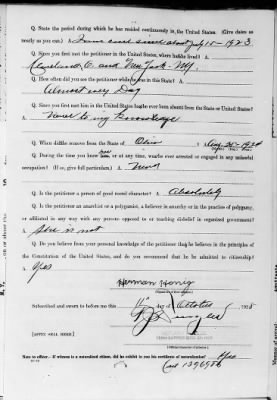 Q. State the period during which he has resided continuously in the United States. (Give dates as
nearly as you can.) A. since about July 15 - 1923
Q. Since you first met the petitioner in the United States, where has he lived? A.
Cleveland O. and New York. N.Y.
Q. How often did you see the petitioner while in this State? A.
Almost every Day
Q. Since you first met him in the United States has he ever been absent from the State or United States?
A. None to my Knowledge
Q. When did he remove from the State of Ohio ? Aug. 25 - 1924
Q. During the time you knew him, or at any time, was he ever arrested or engaged in any unlawful
occupation? (If so, give full particulars.) A. Never
Q. Is the petitioner a person of good moral character? A. Absolutely
Q. Is the petitioner an anarchist or a polygamist, a believer in anarchy or in the practice of polygamy,
or affiliated in any way with any persons opposed to or teaching disbelief in organized government?
A. She is not
Q. Do you believe from your personal knowledge of the petitioner that he believes in the principles of
the Constitution of the United States, and do you recommend that he be admitted to citizenship?
A. Yes
Herman Honig
Subscribed and sworn to before me this 11 day of October, 1928
[AFFIX SEAL HERE.]
Note to officer.—If witness is a naturalized citizen, did he exhibit to you his certificate of naturalization? Yes
Cert 1396986